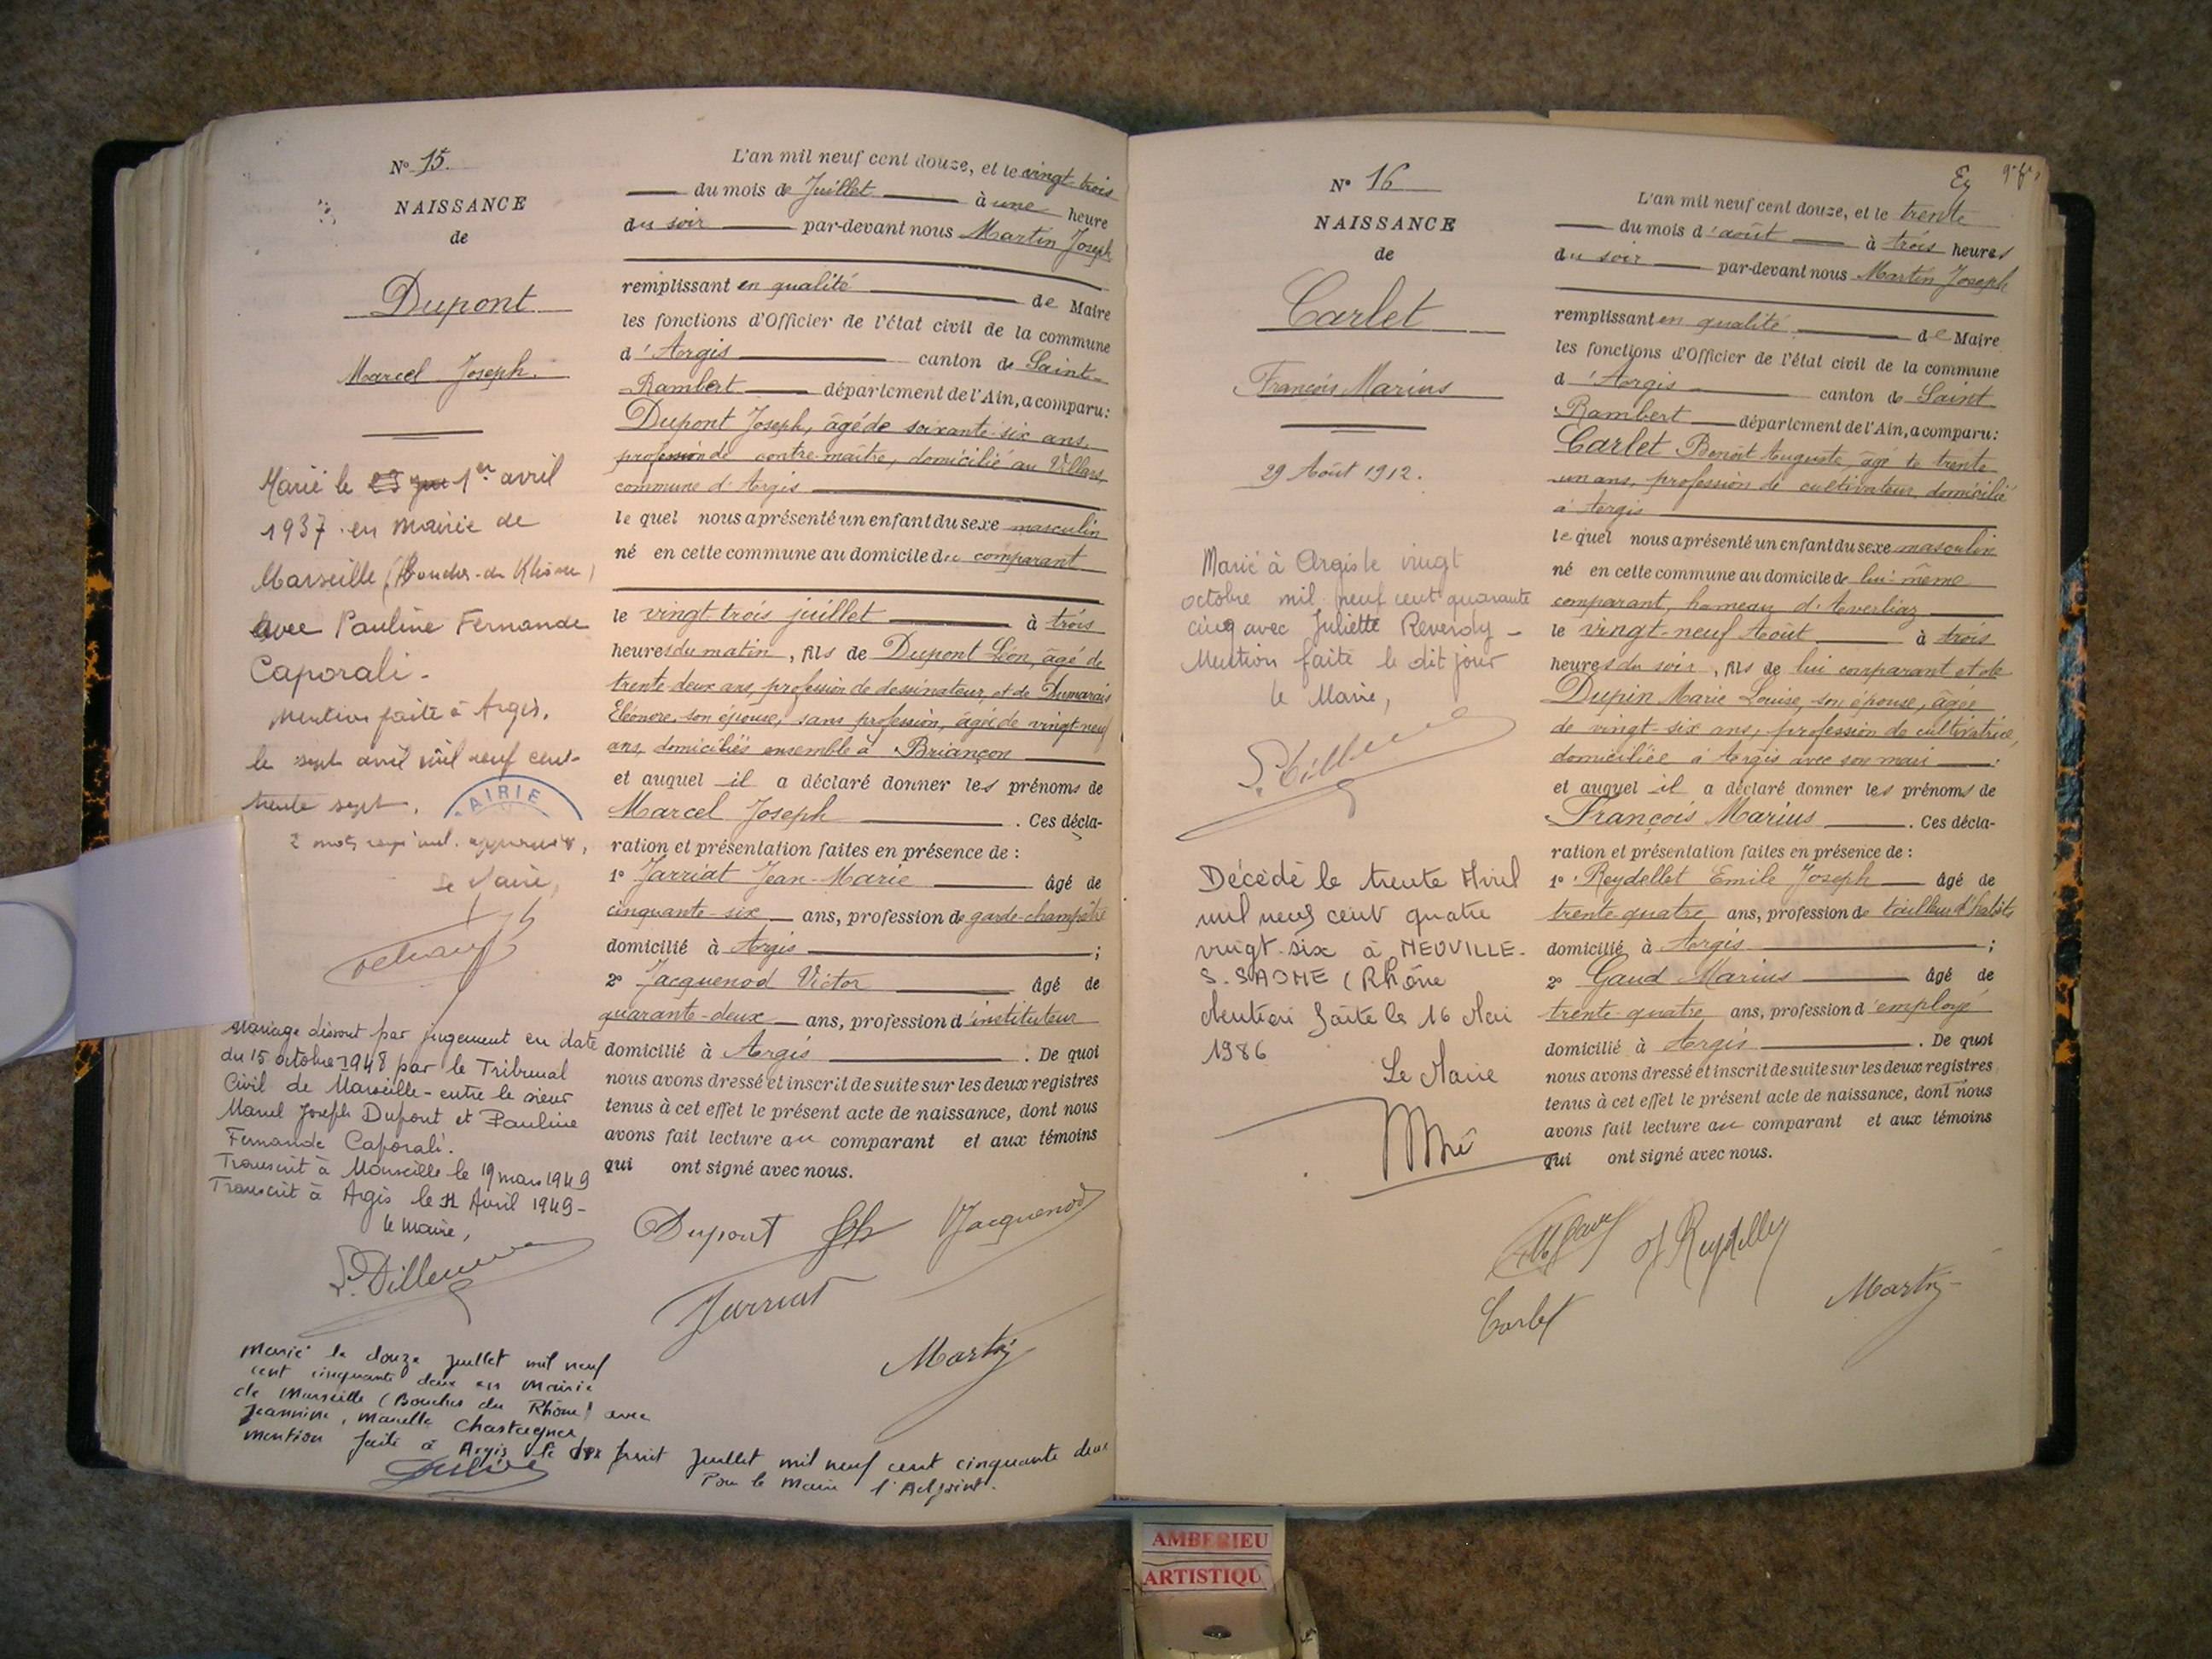 N° 15.
NAISSANCE
de
Dupont
Marcel Joseph.
Marié le 1er avril
1937 en mairie de
Marseille (Bouches-du-Rhône)
avec Pauline Fernande
Caporali.
Mention faite à Argis,
le sept avril mil neuf cent-
trente sept.
AIRIE
2 mots
Le Maire,
Mariage dissout par jugement en date
du 15 octobre 1948 par le Tribunal
Civil de Marseille - entre le sieur
Marcel Joseph Dupont et Pauline
Fernande Caporali.
Transcrit à Marseille le 19 mars 1949
Transcrit à Argis le Avril 1949-
le Maire,
Marié le douze juillet mil neuf
cent cinquante deux en Mairie
de Marseille (Bouches du Rhône) avec
Jeannine, Marcelle Chastagner
mention faite à Argis le dix huit Juillet mil neuf cent cinquante deux
Pour le Maire l'Adjoint.
L'an mil neuf cent douze, et le vingt-trois
du mois de Juillet à une heure
du soir par-devant nous Martin Joseph
remplissant en qualité de Maire
les fonctions d'Officier de l'état civil de la commune
d'Argis canton de Saint-
Rambert département de l'Ain, a comparu:
Dupont Joseph, âgé de soixante-six ans,
profession de contre-maître, domicilié au Villars,
commune d'Argis
lequel nous a présenté un enfant du sexe masculin
né en cette commune au domicile du comparant
le vingt trois juillet à trois
heures du matin, fils de Dupont Léon, âgé de
trente-deux ans, profession de dessinateur, et de Dumarais
Eléonore, son épouse, sans profession, âgée de vingt-neuf
ans, domiciliés ensemble à Briançon
et auquel il a déclaré donner les prénoms de
Marcel Joseph . Ces décla-
ration et présentation faites en présence de :
1° Jarriat Jean-Marie âgé de
cinquante-six ans, profession de garde-champêtre
domicilié à Argis ;
2° Jacquenod Victor âgé de
quarante-deux ans, profession d'instituteur
domicilié à Argis . De quoi
nous avons dressé et inscrit de suite sur les deux registres
tenus à cet effet le présent acte de naissance, dont nous
avons fait lecture au comparant et aux témoins
qui ont signé avec nous.
Dupont Jph VJacquenod
Jarriat
Martin
N° 16
NAISSANCE
de
Carlet
François Marius
29 Août 1912.
Marié à Argis le vingt
octobre mil neuf cent quarante
cinq avec Juliette Reverdy -
Mention faite le dit jour
le Maire,
Décédé le trente Avril
mil neuf cent quatre
vingt-six à NEUVILLE-
S. SAONE (Rhône
Mention faite le 16 Mai
1986
Le Maire
L'an mil neuf cent douze, et le trente
du mois d'août à trois heures
du soir par-devant nous Martin Joseph
remplissant en qualité de Maire
les fonctions d'Officier de l'état civil de la commune
d'Argis canton de Saint
Rambert département de l'Ain, a comparu:
Carlet Benoît Auguste, âgé de trente
un ans, profession de cultivateur, domicilié
à Argis
lequel nous a présenté un enfant du sexe masculin
né en cette commune au domicile de lui-même
comparant, hameau d'Averliaz
le vingt-neuf Août à trois
heures du soir, fils de lui comparant et de
Dupin Marie Louise, son épouse, âgée
de vingt-six ans, profession de cultivatrice,
domiciliée à Argis avec son mari .
et auquel il a déclaré donner les prénoms de
François Marius . Ces décla-
ration et présentation faites en présence de :
1° Reydellet Emile Joseph âgé de
trente-quatre ans, profession de tailleur d'habits
domicilié à Argis ;
2° Gaud Marius âgé de
trente-quatre ans, profession d'employé
domicilié à Argis . De quoi
nous avons dressé et inscrit de suite sur les deux registres
tenus à cet effet le présent acte de naissance, dont nous
avons fait lecture au comparant et aux témoins
qui ont signé avec nous.
Carlet
Martin
AMBERIEU
ARTISTIQU